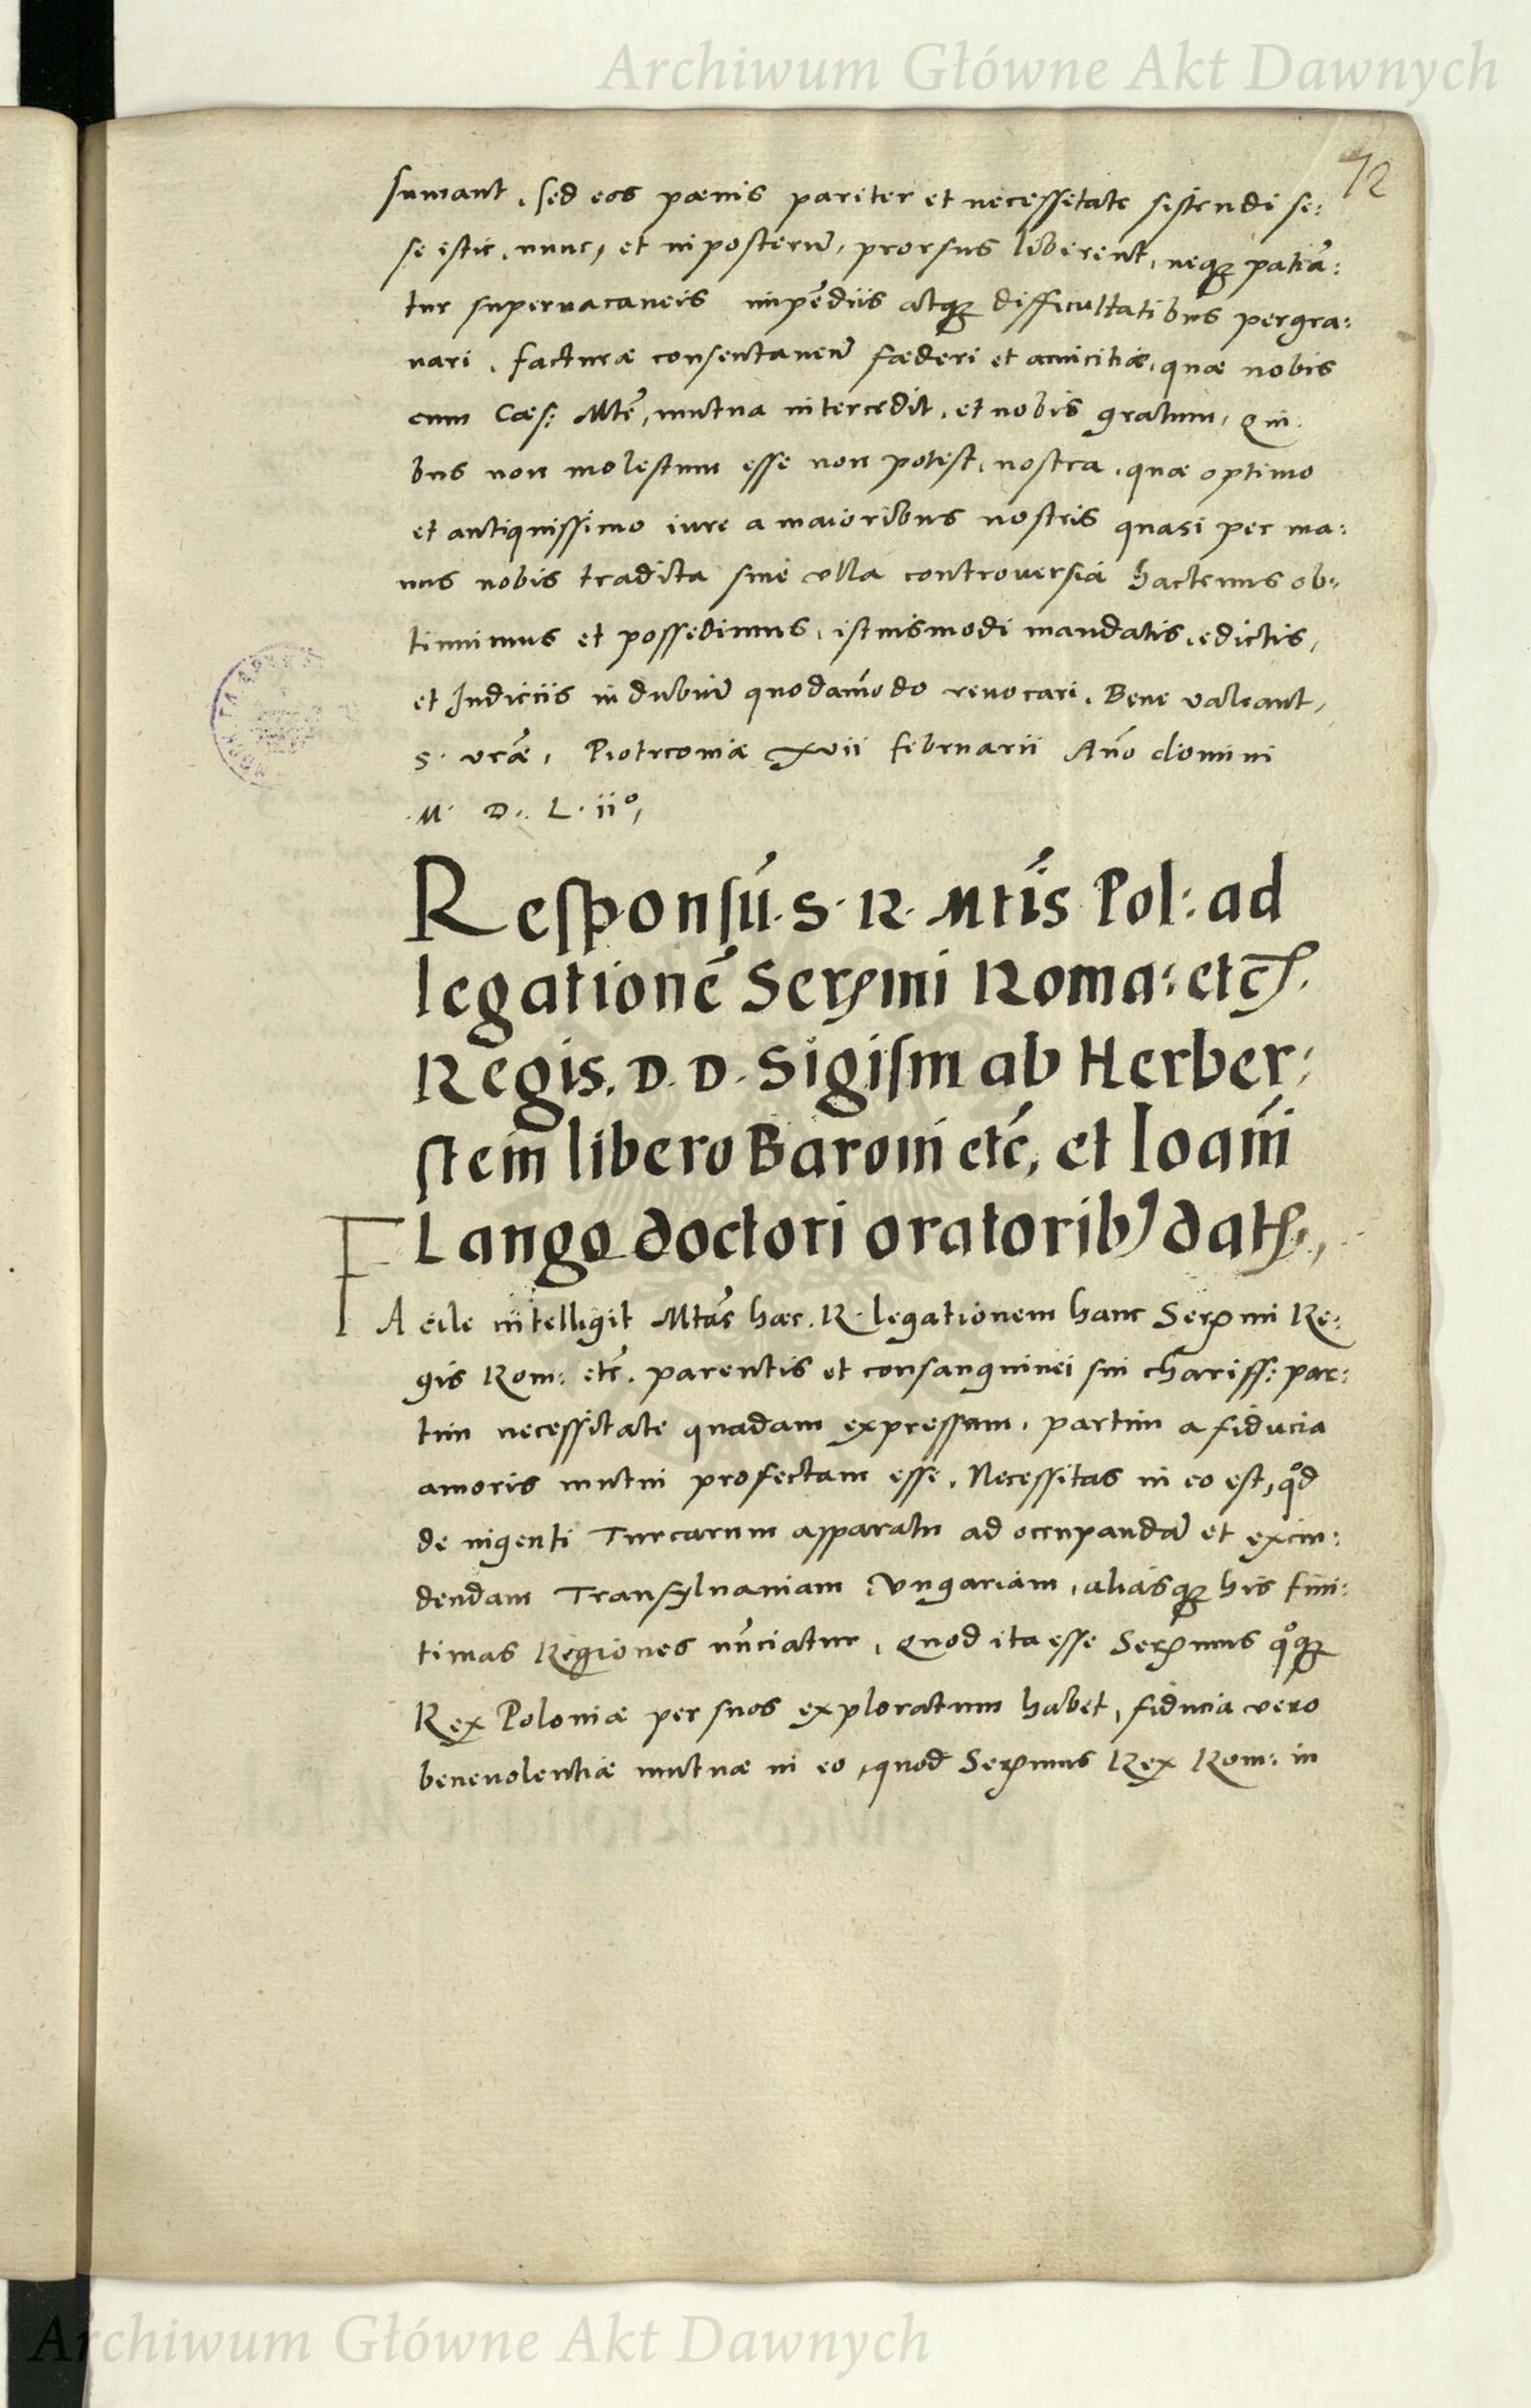 Archiwum Główne Akt Dawnych
72
sumant, sed eos pænis pariter et necessitate sistendi se:
se istic, nunc, et in posterū, prorsus liberent, neqꝫ patiā:
tur supervacaneis impēdiis atqꝫ difficultatibus pergra:
vari, facturæ consentaneū fæderi et amicitiæ, quæ nobis
cum Cæs: Mte, mutua intercedit, et nobis gratum, Qui:
bus non molestum esse non potest, nostra, quæ optimo
et antiquissimo iure a maioribus nostris quasi per ma:
nus nobis tradita sine ulla controversia hactenus ob:
tinuimus et possedimus, istiusmodi mandatis, edictis,
et Judiciis in dubiū quodāmodo revocari. Bene valeant,
S. vræ, Piotrcoviæ xvii februarii Año domini
M. D. L. iiº,
Responsū. S. R. Mtis Pol: ad
legationē Serᵐmi Roma: etc.
Regis. D. D. Sigism ab Herber:
stein libero Baroni etc, et Ioāni
Lango doctori oratoribꝰ datū,
FAcile intelligit Mtas hæc. R. legationem hanc Serᵐmi Re:
gis Rom: etc. parentis et consanguinei sui chariss: par:
tim necessitate quadam expressam, partim a fiducia
amoris mutui profectam esse. Necessitas in eo est, qođ
de ingenti Turcarum apparatu ad occupandā et excin:
dendam Transylvaniam, Vngariam, aliasqꝫ his fini:
timas Regiones nūciatur, Quod ita esse Serᵐmus qoqꝫ
Rex Poloniæ per suos exploratum habet, fiducia vero
benevolentiæ mutuæ in eo, quod Serᵐmus Rex Rom: in
Archiwum Główne Akt Dawnych